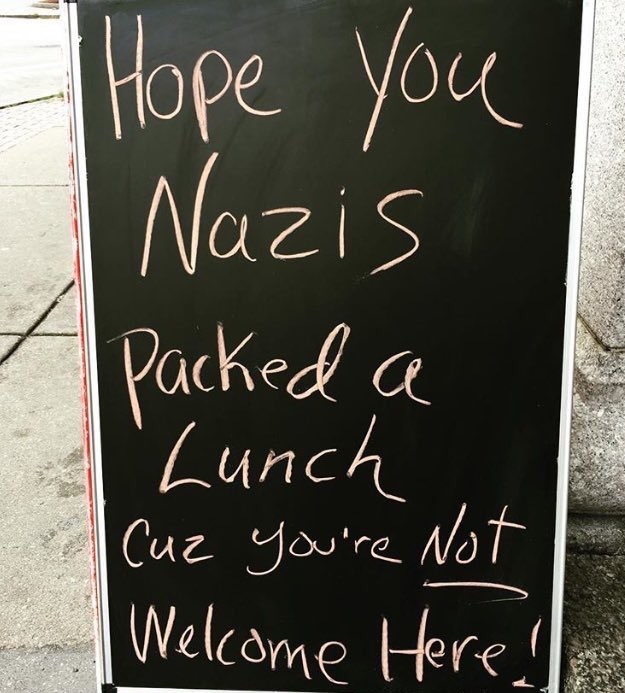 Hope You
Nazis
Packed a
Lunch
Cuz you're Not
Welcome Here!